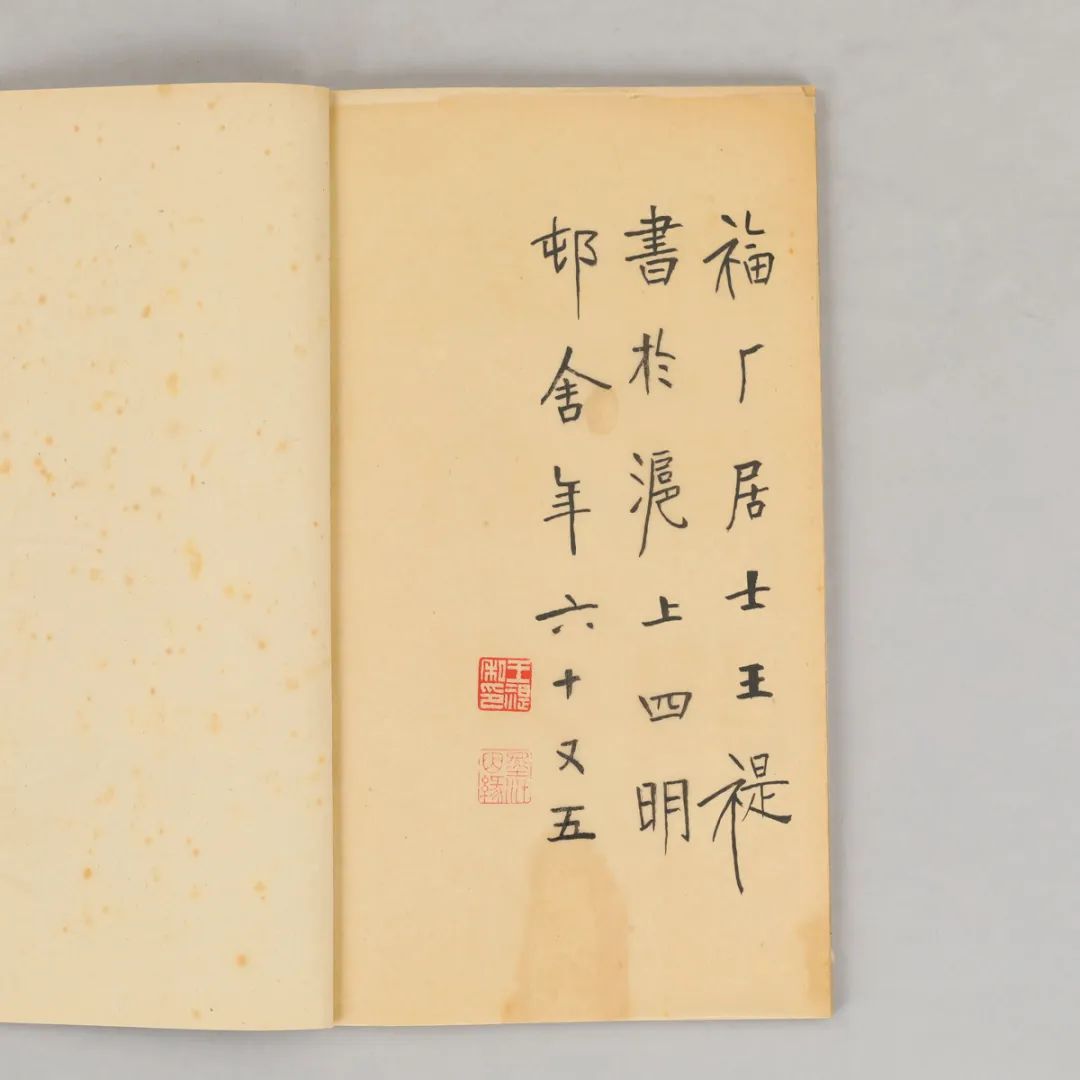 福厂居士王禔
書於滬上四明
邨舍年六十又五
王禔私印